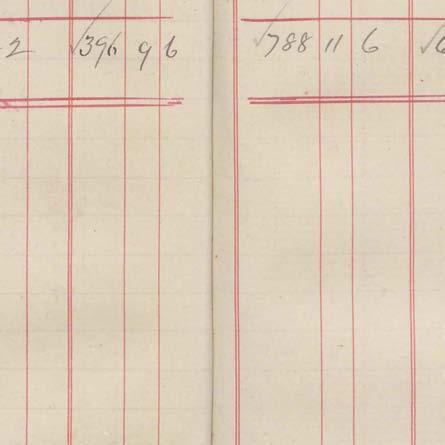 2 √396 9 6 √788 11 6 √6